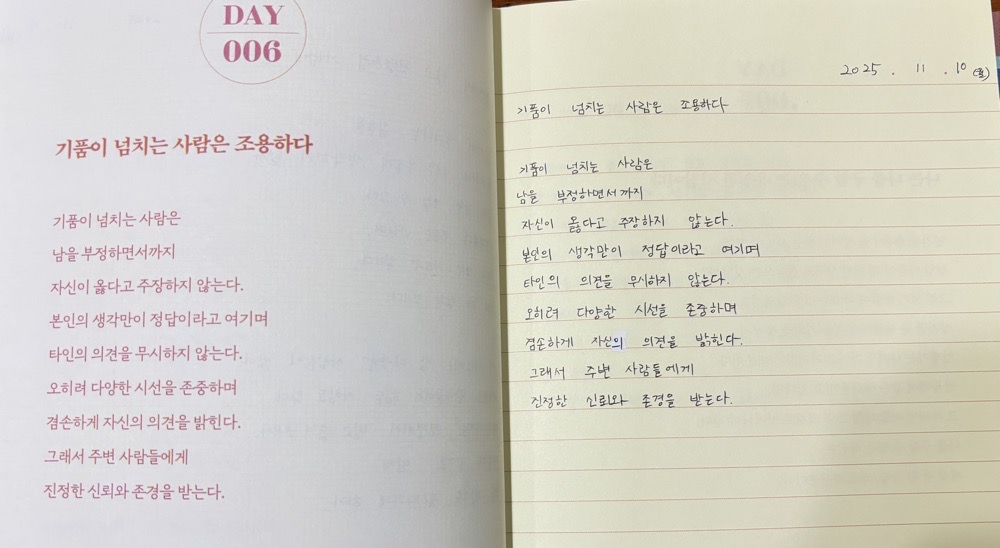 DAY
006
기품이 넘치는 사람은 조용하다
기품이 넘치는 사람은
남을 부정하면서까지
자신이 옳다고 주장하지 않는다.
본인의 생각만이 정답이라고 여기며
타인의 의견을 무시하지 않는다.
오히려 다양한 시선을 존중하며
겸손하게 자신의 의견을 밝힌다.
그래서 주변 사람들에게
진정한 신뢰와 존경을 받는다.
2025. 11. 10 (월)
기품이 넘치는 사람은 조용하다
기품이 넘치는 사람은
남을 부정하면서까지
자신이 옳다고 주장하지 않는다.
본인의 생각만이 정답이라고 여기며
타인의 의견을 무시하지 않는다.
오히려 다양한 시선을 존중하며
겸손하게 자신의 의견을 밝힌다.
그래서 주변 사람들에게
진정한 신뢰와 존경을 받는다.